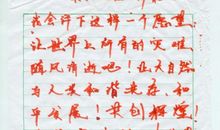 我会许下这样一个愿望：
让世界上所有的灾难
随风消逝吧！让大自然
与人类和谐共存、和
平发展，共创辉煌！